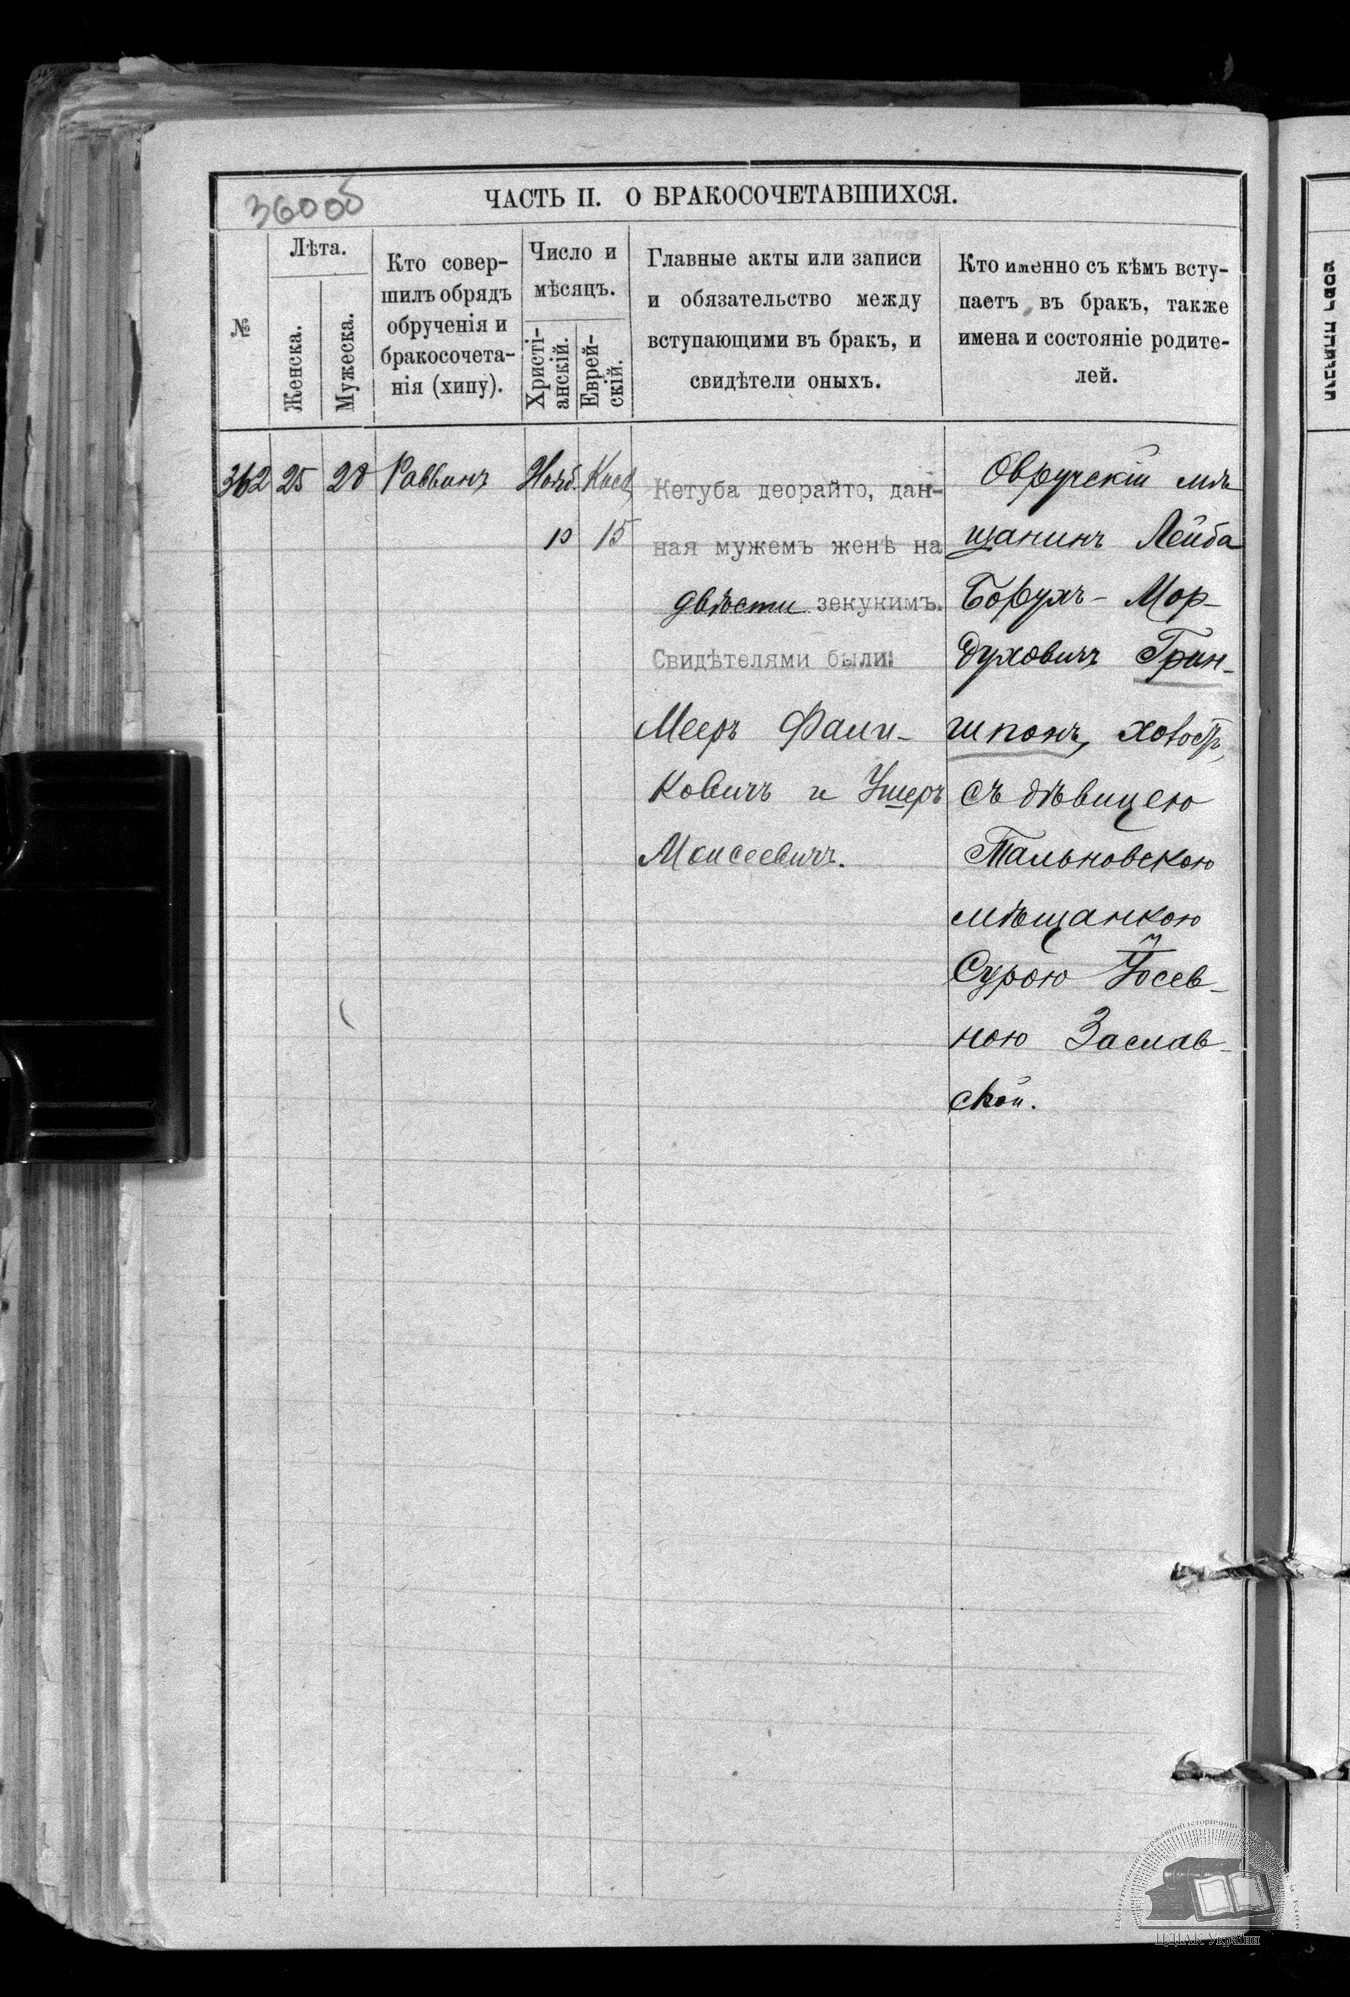 360об
ЧАСТЬ II. О БРАКОСОЧЕТАВШИХСЯ.
№
Лѣта.
Женска.
Мужеска.
Кто совер-
шилъ обрядъ
обрученія и
бракосочета-
нія (хипу).
Число и
мѣсяцъ.
Христі-
анскій.
Еврей-
скій.
Главные акты или записи
и обязательство между
вступающими въ бракъ, и
свидѣтели оныхъ.
Кто именно съ кѣмъ всту-
паетъ въ бракъ, также
имена и состояніе родите-
лей.
362
25
28
Раввинъ
Нояб.
10
Кисл
15
Кетуба деорайто, дан-
ная мужемъ женѣ на
двѣсти зекукимъ.
Свидѣтелями были:
Мееръ Фали-
ковичъ и Ушеръ
Моисеевичъ.
Овручскій мѣ
щанинъ Лейба
Борухъ- Мор-
духовичъ Грин-
шпонъ, холост,
съ дѣвицею
Тальновскою
мѣщанкою
Сурою Іосев-
ною Заслав-
ской.
ЦДІАК України